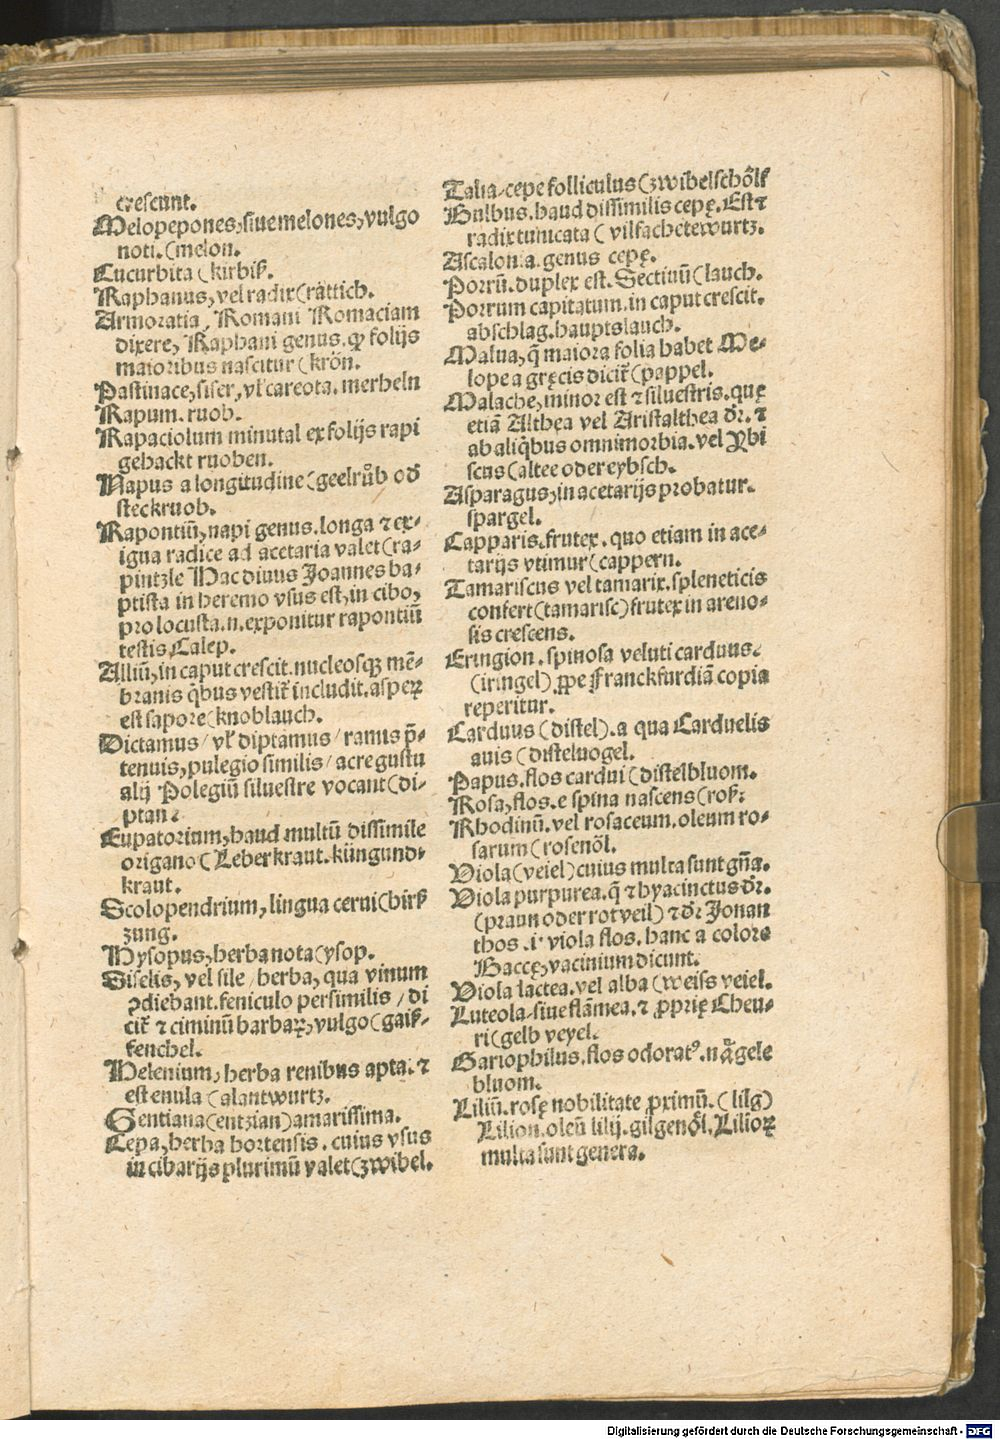 crescunt.
Melopepones, siue melones, vulgo
noti. (melon.
Cucurbita (kirbiß.
Raphanus, vel radix (rättich.
Armoratia, Romani Romaciam
dixere, Raphani genus. qꝫ folijs
maioribus nascitur (krön.
Pastinace, siser, vľ careota. merheln
Rapum. ruob.
Rapaciolum minutal ex folijs rapi
gehackt ruoben.
Napus a longitudine (geelrůb od̄
steckruob.
Rapontiū, napi genus. longa ⁊ ex-
igua radice ad acetaria valet (ra-
pintzle Hac diuus Joannes ba-
ptista in heremo vsus est, in cibo,
pro locusta. n. exponitur rapontiū
testis Calep.
Alliū, in caput crescit. nucleosqꝫ mē-
branis q̇bus vestit̄ includit. asperꝝ
est sapore (knoblauch.
Dictamus / vľ diptamus / ramus p̄-
tenuis, pulegio similis / acre gustu
alij Polegiū siluestre vocant (di-
ptan:
Eupatorium, haud multū dissimile
origano (Leberkraut. küngund-
kraut.
Scolopendrium, lingua cerui (hirß
zung.
Hysopus, herba nota (ysop.
Siselis, vel sile / herba, qua vinum
ꝯdiebant. feniculo persimilis / di
cit̄ ⁊ ciminū barbaꝝ, vulgo (gaiß-
fenchel.
Helenium, herba renibus apta. ⁊
est enula (alantwurtz.
Gentiana (entzian) amarissima.
Cepa, herba hortensis. cuius vsus
in cibarijs plurimū valet (zwibel.
Talia cepe folliculus (zwibelschölf
Bulbus. haud dissimilis cepę. Est ⁊
radix tunicata (vilfachetewurtz.
Ascalonia genus cepę.
Porrū. duplex est. Sectiuū (lauch.
Porrum capitatum. in caput crescit.
abschlag. hauptslauch.
Malua, q̄ maiora folia habet Me-
lope a gręcis dicit̄ (pappel.
Malache, minor est ⁊ siluestris. quę
etiā Althęa vel Aristalthea dr̄. ⁊
ab aliq̇bus omnimorbia. vel Ybi
scus (altee oder eybsch.
Asparagus, in acetarijs probatur.
spargel.
Capparis. frutex. quo etiam in ace-
tarijs vtimur (cappern.
Tamariscus vel tamarix. spleneticis
confert (tamarisc) frutex in areno-
sis crescens.
Eringion. spinosa veluti carduus.
(iringel). ꝓpe Franckfurdiā copia
reperitur.
Carduus (distel). a qua Carduelis
auis (distelvogel.
Papus. flos cardui (distelbluom.
Rosa, flos. e spina nascens (roß:
Rhodinū. vel rosaceum. oleum ro-
sarum (rosenöl.
Viola (veiel) cuius multa sunt gn̄a.
Viola purpurea. q̄ ⁊ hyacinctus dr̄.
(praun oder rot veil) ⁊ dr̄ Jonan
thos .i. viola flos. hanc a colore
Baccę, vacinium dicunt.
Viola lactea. vel alba (weiss veiel.
Luteola siue flāmea. ⁊ ꝓprię Cheu-
ri (gelb veyel.
Gariophilus. flos odoratꝰ. nägele
bluom.
Liliū. rosę nobilitate ꝓximū. (lilg)
Lilion. oleū lilij. gilgenöl. Lilioꝝ
multa sunt genera.
Digitalisierung gefördert durch die Deutsche Forschungsgemeinschaft - DFG